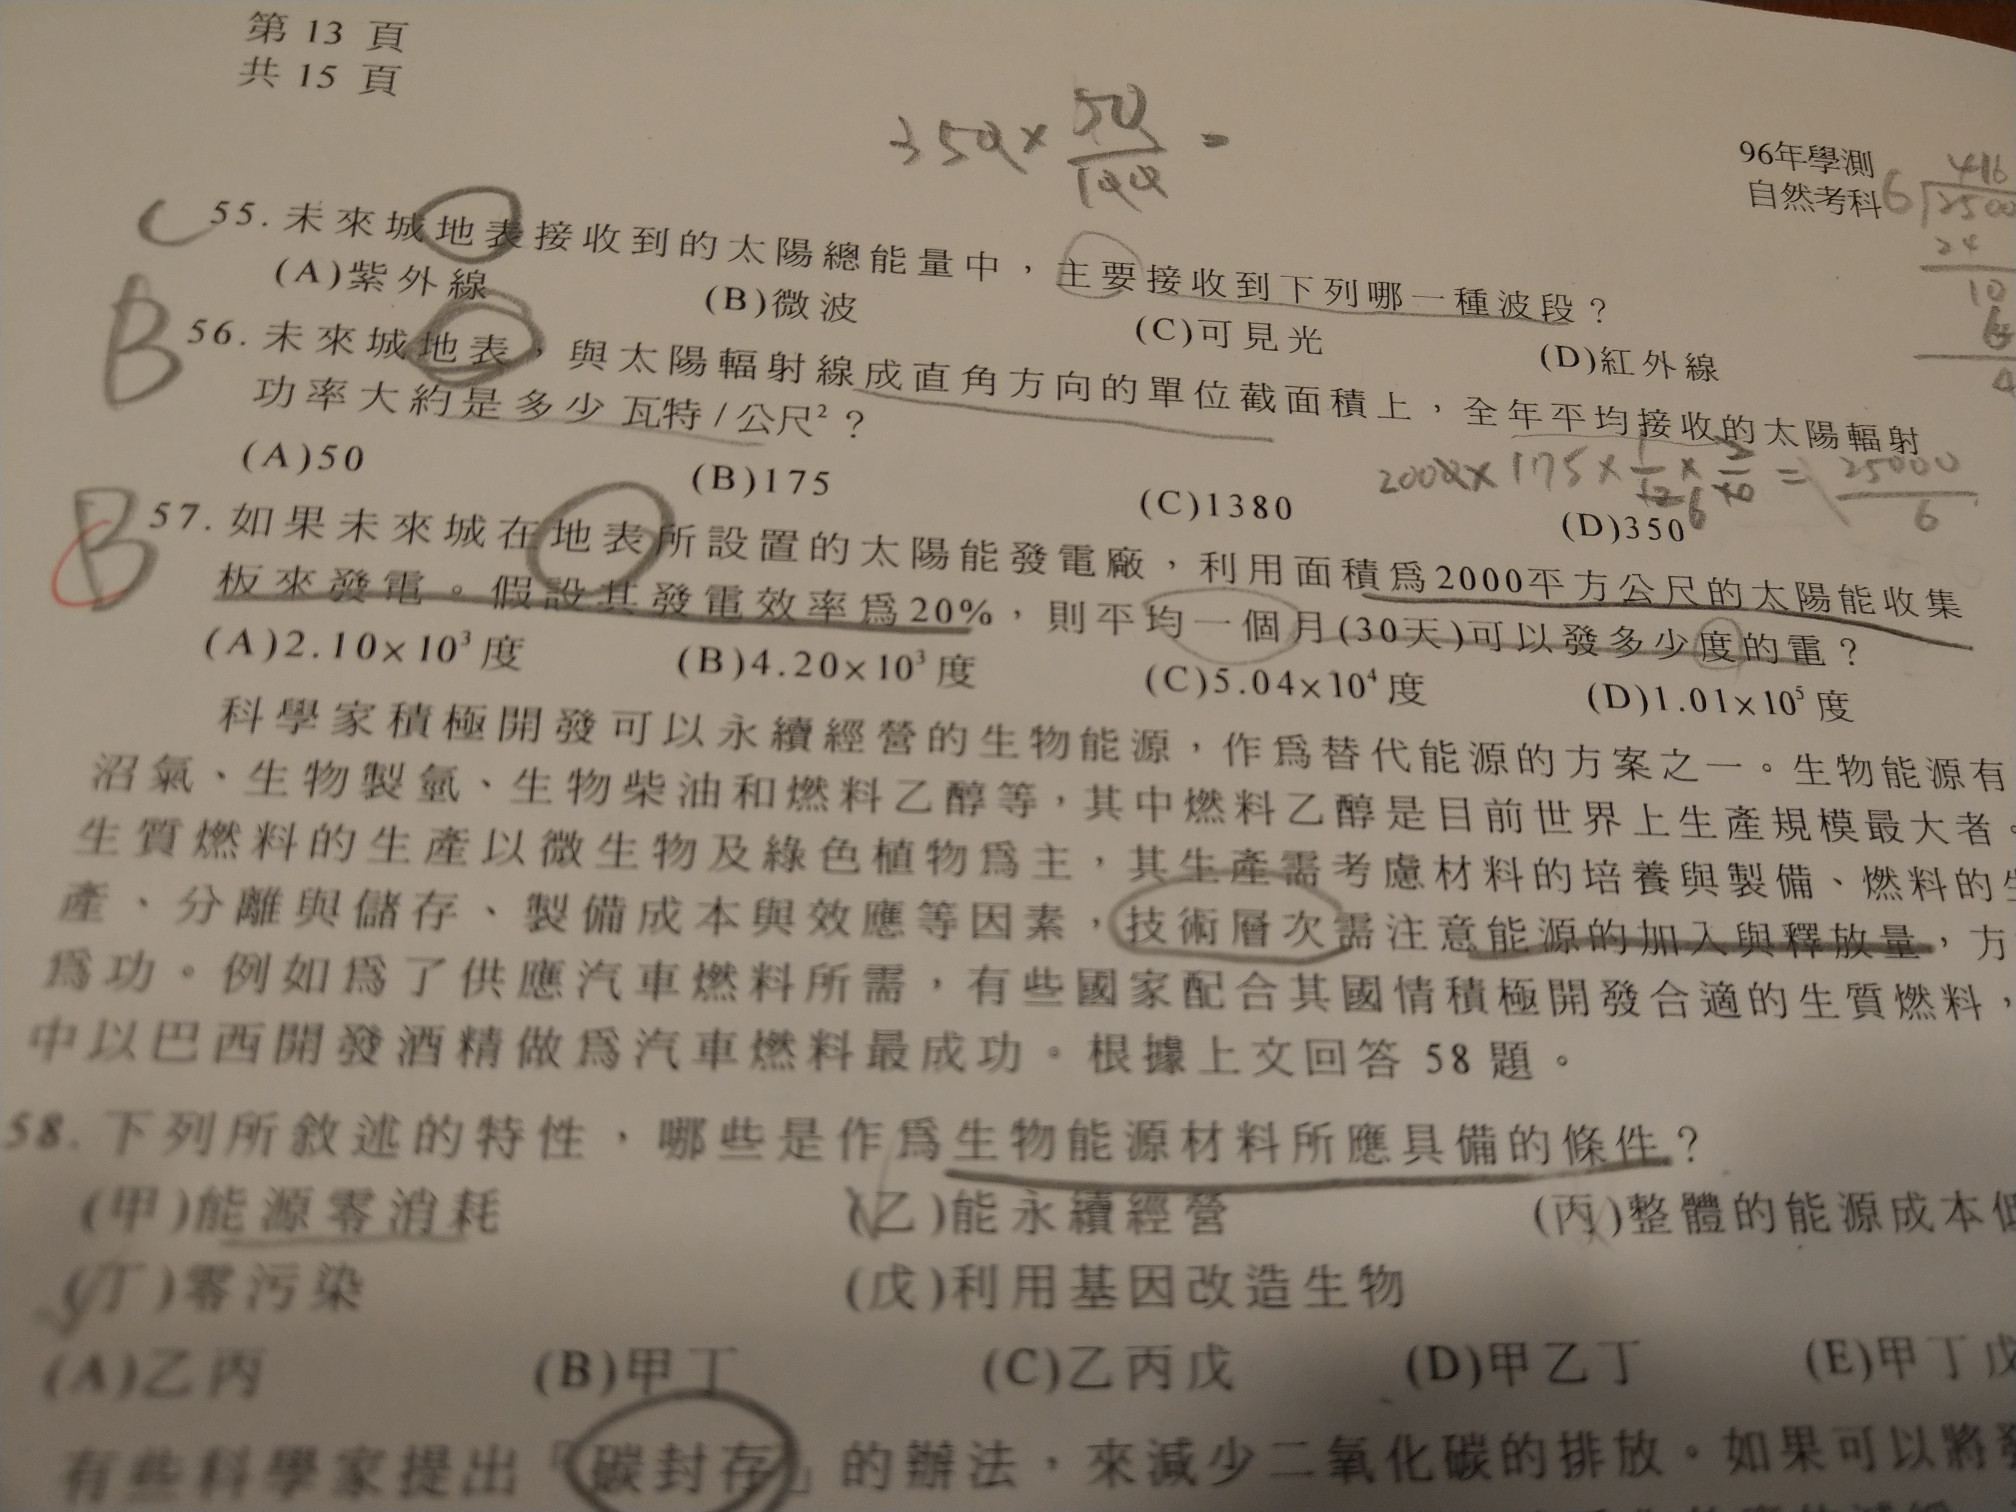 第 13 頁
共 15 頁
350×50/100 =
96年學測
自然考科
C 55. 未來城地表接收到的太陽總能量中，主要接收到下列哪一種波段？
(A)紫外線 (B)微波 (C)可見光 (D)紅外線
B 56. 未來城地表，與太陽輻射線成直角方向的單位截面積上，全年平均接收的太陽輻射
功率大約是多少 瓦特/公尺²？
(A)50 (B)175 (C)1380 (D)350
B 57. 如果未來城在地表所設置的太陽能發電廠，利用面積為2000平方公尺的太陽能收集
板來發電。假設其發電效率為20%，則平均一個月(30天)可以發多少度的電？
(A)2.10×10³度 (B)4.20×10³度 (C)5.04×10⁴度 (D)1.01×10⁵度
科學家積極開發可以永續經營的生物能源，作為替代能源的方案之一。生物能源有
沼氣、生物製氫、生物柴油和燃料乙醇等，其中燃料乙醇是目前世界上生產規模最大者。
生質燃料的生產以微生物及綠色植物為主，其生產需考慮材料的培養與製備、燃料的生
產、分離與儲存、製備成本與效應等因素，技術層次需注意能源的加入與釋放量，方
為功。例如為了供應汽車燃料所需，有些國家配合其國情積極開發合適的生質燃料，
中以巴西開發酒精做為汽車燃料最成功。根據上文回答 58 題。
58. 下列所敘述的特性，哪些是作為生物能源材料所應具備的條件？
(甲)能源零消耗 (乙)能永續經營 (丙)整體的能源成本低
(丁)零污染 (戊)利用基因改造生物
(A)乙丙 (B)甲丁 (C)乙丙戊 (D)甲乙丁 (E)甲丁戊
有些科學家提出「碳封存」的辦法，來減少二氧化碳的排放。如果可以將